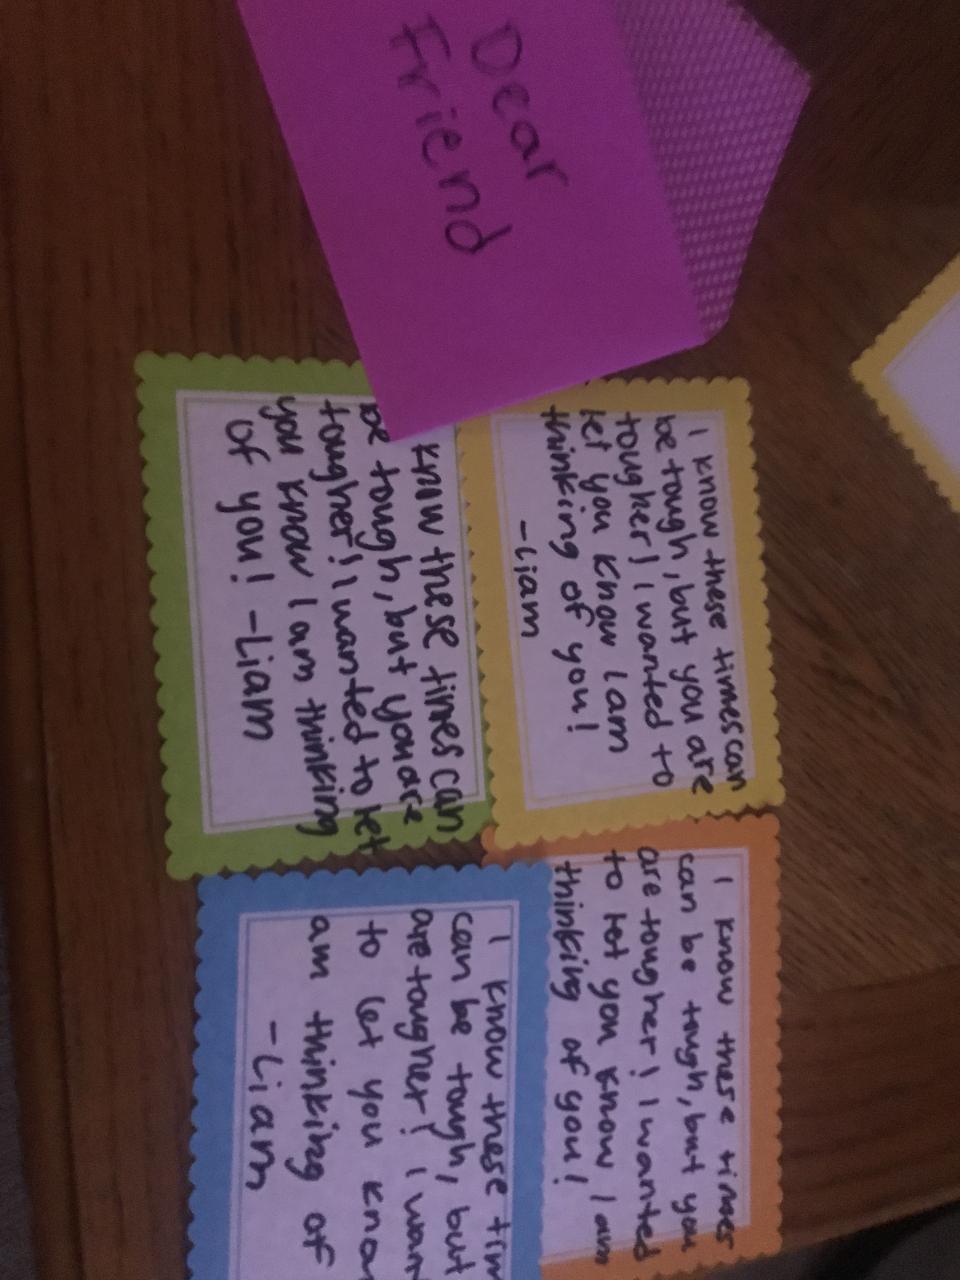 Dear
Friend
I know these times can
be tough, but you are
tougher! I wanted to
let you know I am
thinking of you!
-Liam
know these times can
be tough, but you are
tougher! I wanted to let
you know I am thinking
of you! -Liam
I know these times
can be tough, but you
are tougher! I wanted
to let you know I am
thinking of you!
I know these tim
can be tough, but
are tougher! I wan
to let you kno
am thinking of
-Liam